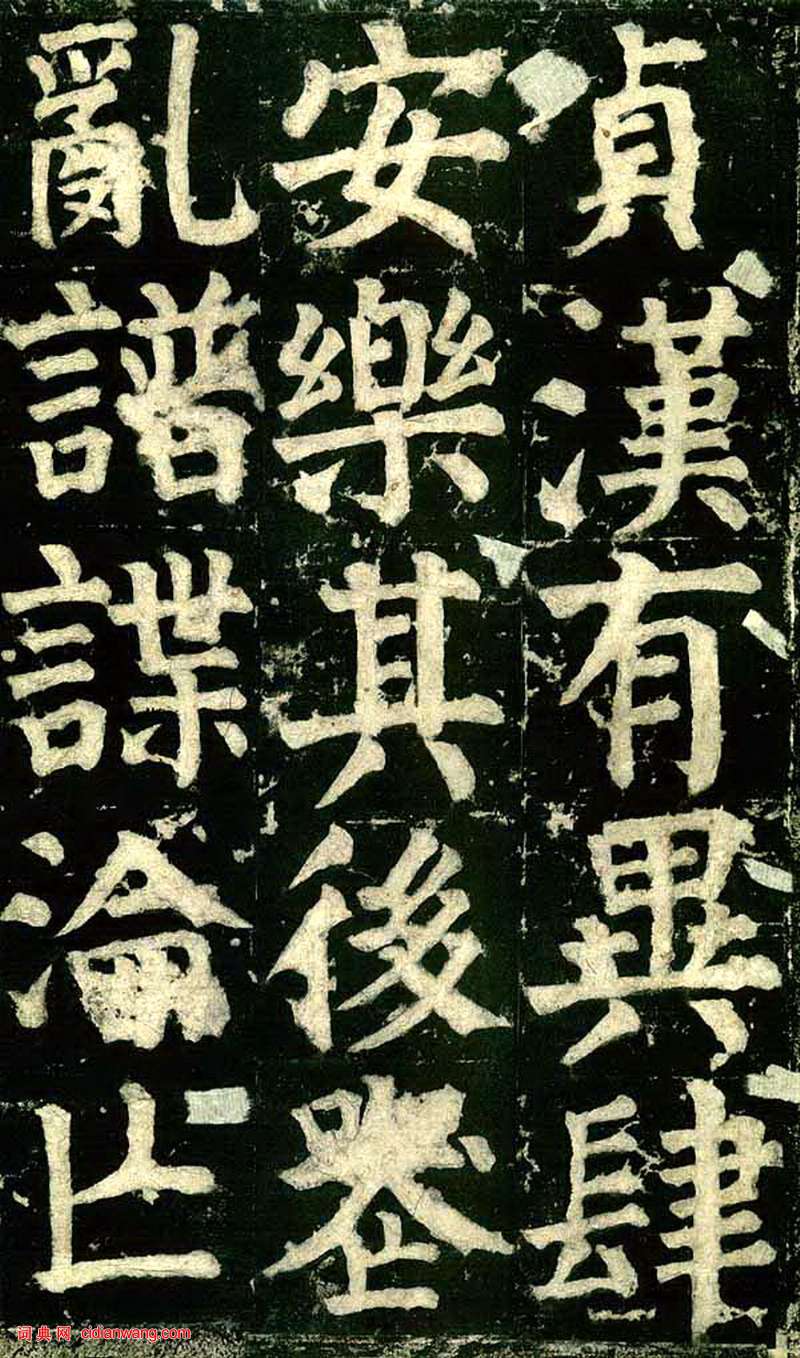 貞漢有異肆
安樂其後喪
亂譜諜淪亡
词典网 cidianwang.com